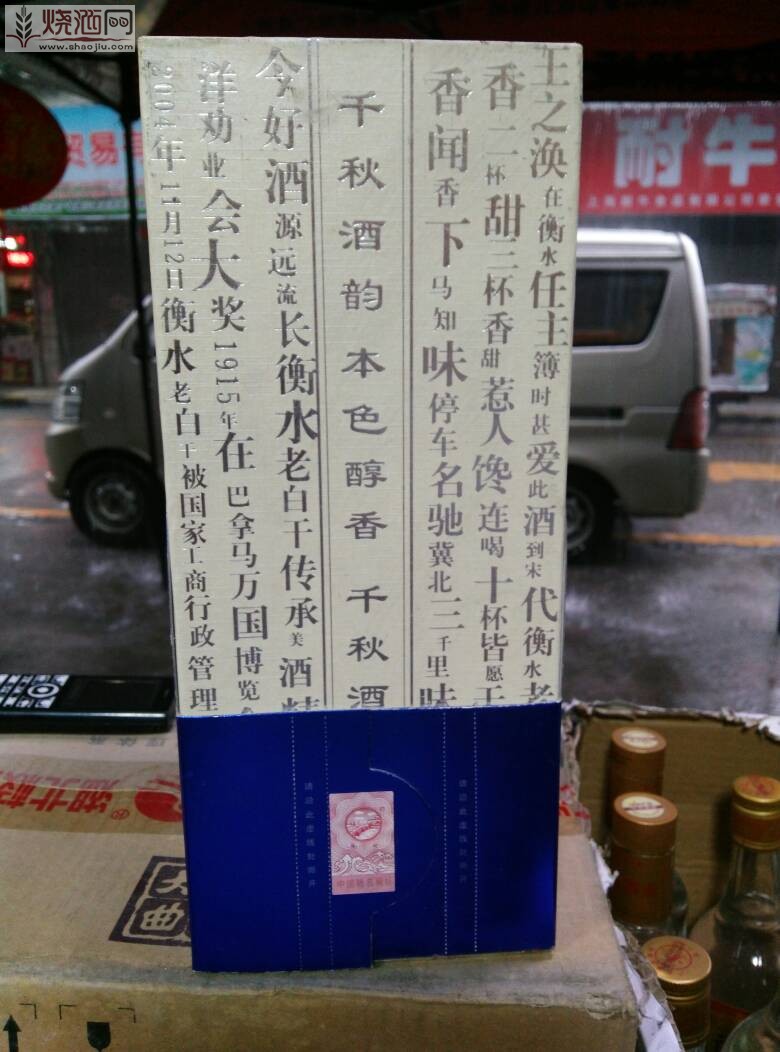 烧酒网
www.shaojiu.com
王之涣在衡水任主簿时甚爱此酒到宋代衡水老
香二杯甜三杯香甜惹人馋连喝十杯皆愿
香闻香下马知味停车名驰冀北三千里味
千秋酒韵本色醇香 千秋酒
今好酒源远流长衡水老白干传承美酒精
洋劝业会大奖1915年在巴拿马万国博览会
2004年11月12日衡水老白干被国家工商行政管理
请沿此虚线封割开
请沿此虚线封割开
耐牛
贸易
湖北
大曲